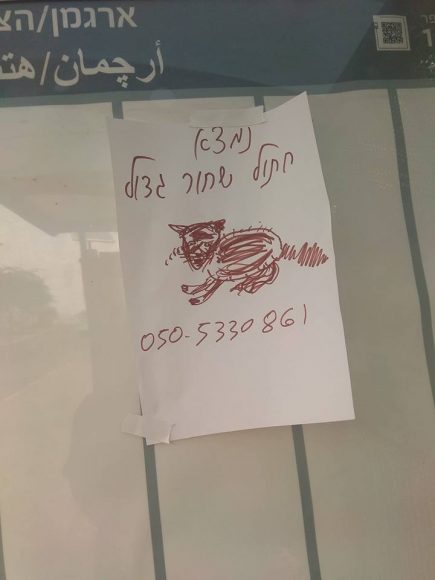 ארגמן/הצ
أرچمان/هتس
נמצא
חתול שחור גדול
050-5330861